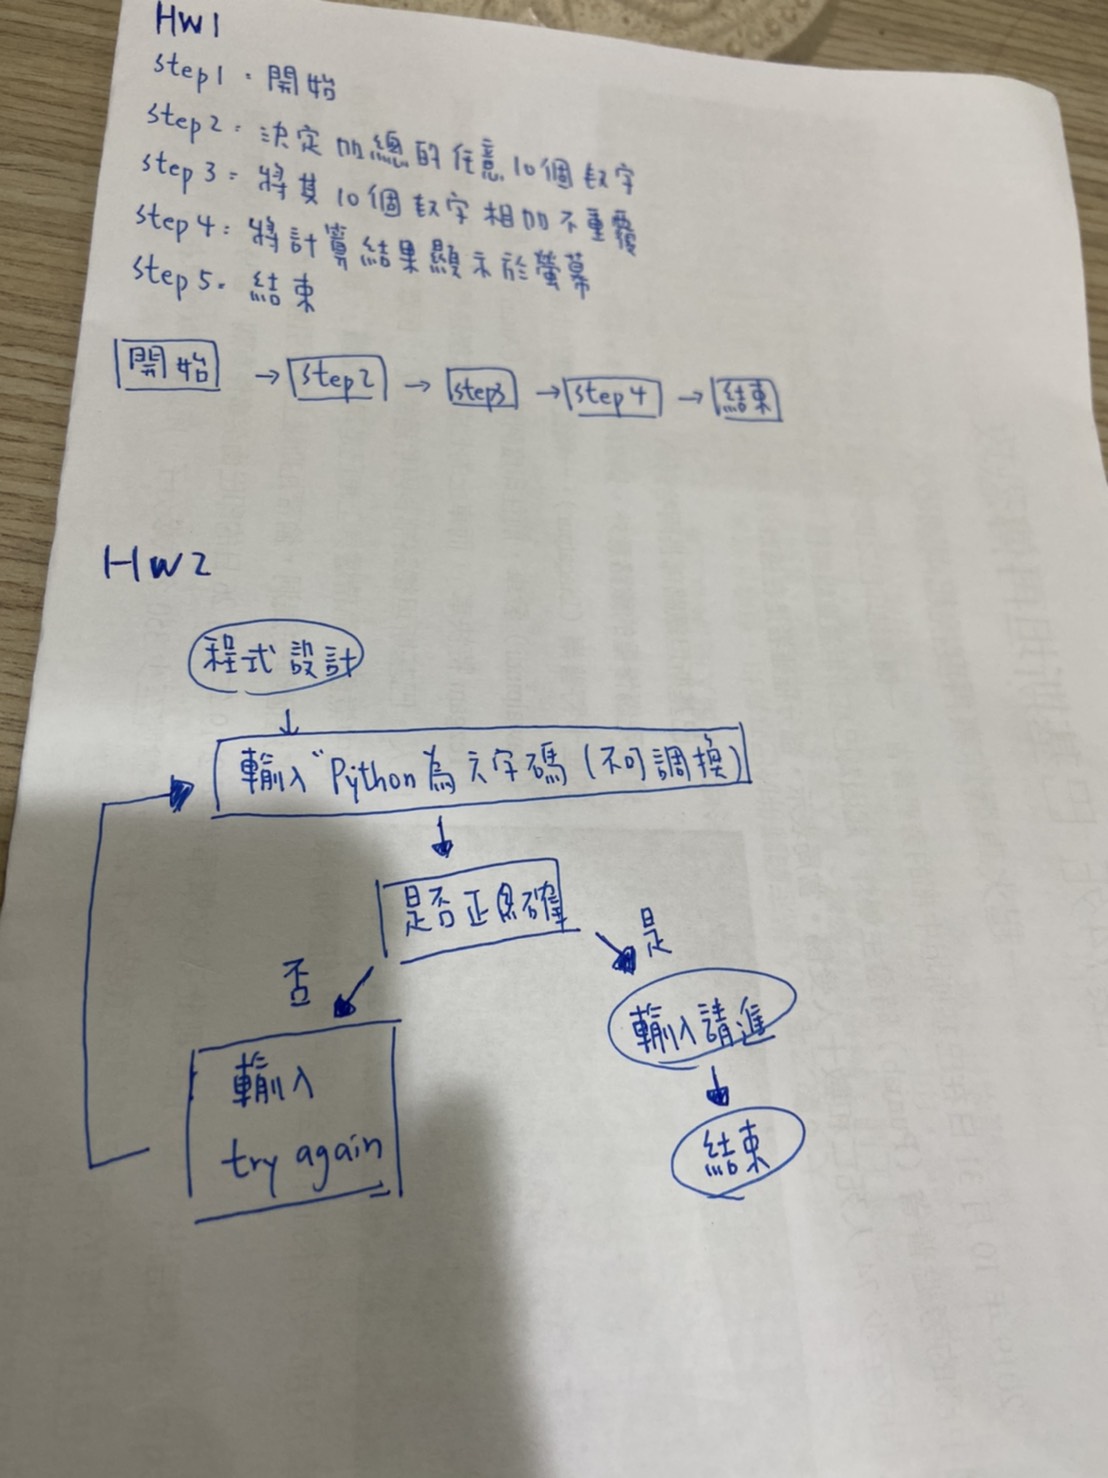 HW1
Step1:開始
Step2:決定加總的任意10個数字
Step3:將其10個数字相加不重覆
Step4:將計算結果顯示於螢幕
Step5:結束
開始 → Step2 → Step3 → Step4 → 結束
HW2
程式設計
輸入“Python為文字碼(不可調換)
是否正確
是
否
輸入請進
輸入
try again
結束